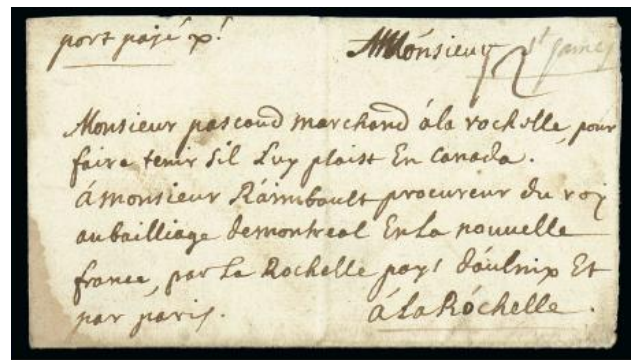 port payé
Monsieur St James
Monsieur pascaud marchand á la rochelle, pour
faire tenir sil Luy plaist En Canada.
á monsieur Ráimbault procureur du roy
au bailliage de montreal En La nouuelle
france, par La Rochelle pays dáulnix Et
par paris. á La Róchelle.